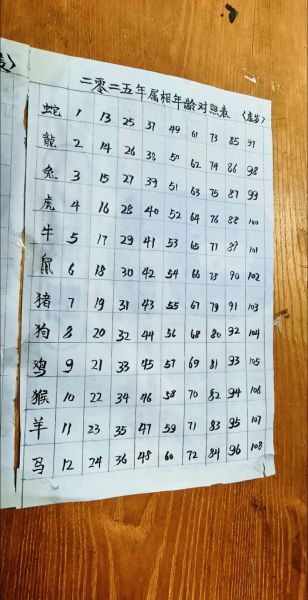 二零二五年属相年龄对照表 (虚岁)
蛇 1 13 25 37 49 61 73 85 97
龍 2 14 26 38 50 62 74 86 98
兔 3 15 27 39 51 63 75 87 99
虎 4 16 28 40 52 64 76 88 100
牛 5 17 29 41 53 65 77 89 101
鼠 6 18 30 42 54 66 78 90 102
猪 7 19 31 43 55 67 79 91 103
狗 8 20 32 44 56 68 80 92 104
鸡 9 21 33 45 57 69 81 93 105
猴 10 22 34 46 58 70 82 94 106
羊 11 23 35 47 59 71 83 95 107
马 12 24 36 48 60 72 84 96 108